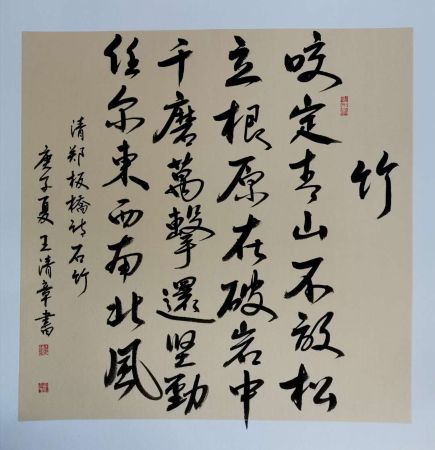 竹
咬定青山不放松
立根原在破岩中
千磨萬擊還坚勁
任尔東西南北風
清郑板橋诗石竹
庚子夏王清章書